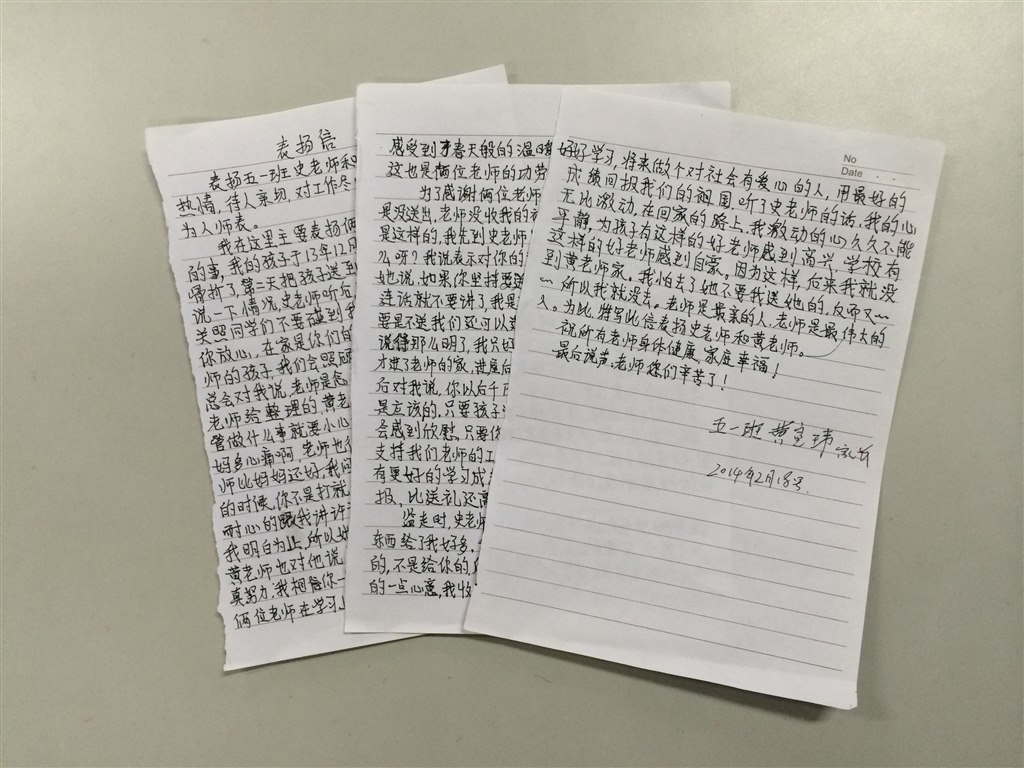 表扬信
表扬五一班史老师和
热情,待人亲切,对工作尽
为人师表。
我在这里主要表扬俩
的事,我的孩子于13年12月
骨折了,第二天把孩子送到
说一下情况,史老师听后
关照同学们不要碰到我
你放心,在家是你们的
师的孩子,我们会照顾
总会对我说,老师是怎
老师给整理的,黄老
管做什么事就要小心
妈多心痛啊,老师也
师比妈妈还好,我问
的时候,你不是打就
耐心的跟我讲许
我明白为止,所以她
黄老师也对他说
真努力,我相信你一
俩位老师在学习
感受到了春天般的温暖
这也是俩位老师的功劳
为了感谢俩位老师
是没送出,老师没收我的
是这样的,我先到史老师
么呀?我说表示对你的
她说,如果你坚持要送
连话就不要讲了,我是
要是不送我们还可以
说得那么明了,我只好
才进了老师的家,进屋后
后对我说,你以后千万
是应该的,只要孩子
会感到欣慰,只要你
支持我们老师的工
有更好的学习成
报,比送礼还高
临走时,史老师
东西给了我好多,
的,不是给你的,
的一点心意,我收
No
Date
好好学习,将来做个对社会有爱心的人,用最好的
成绩回报我们的祖国听了史老师的话,我的心
无比激动,在回家的路上,我激动的心久久不能
平静,为孩子有这样的好老师感到高兴,学校有
这样的好老师感到自豪。因为这样,后来我就没
到黄老师家。我怕去了她不要我送他的,反而又一
所以我就没去。老师是最亲的人,老师是最伟大的
人。为此特写此信表扬史老师和黄老师。
祝所有老师身体健康,家庭幸福!
最后说声,老师您们辛苦了!
五一班 黄 玮 家长
2014年2月18号.